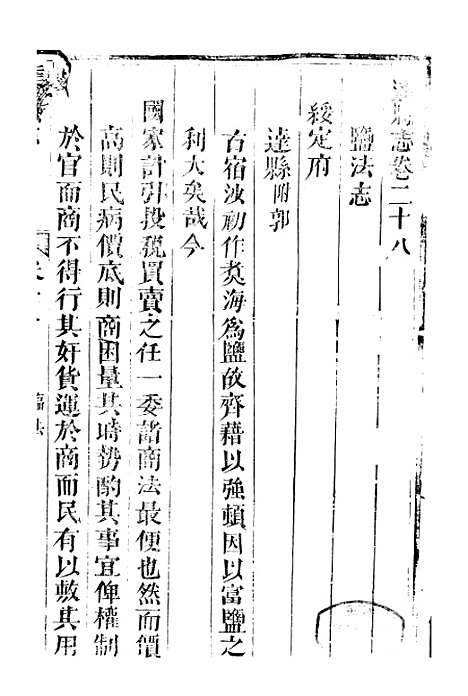 達縣志卷二十八
鹽法志
綏定府
達縣附郭
古宿沙初作煑海爲鹽故齊藉以強頓因以富鹽之
利大矣哉今
國家計引投稅買賣之任一委諸商法最便也然而價
高則民病價底則商困量其時勢酌其事宜俾權制
於官而商不得行其奸貨運於商而民有以敷其用
鹽法